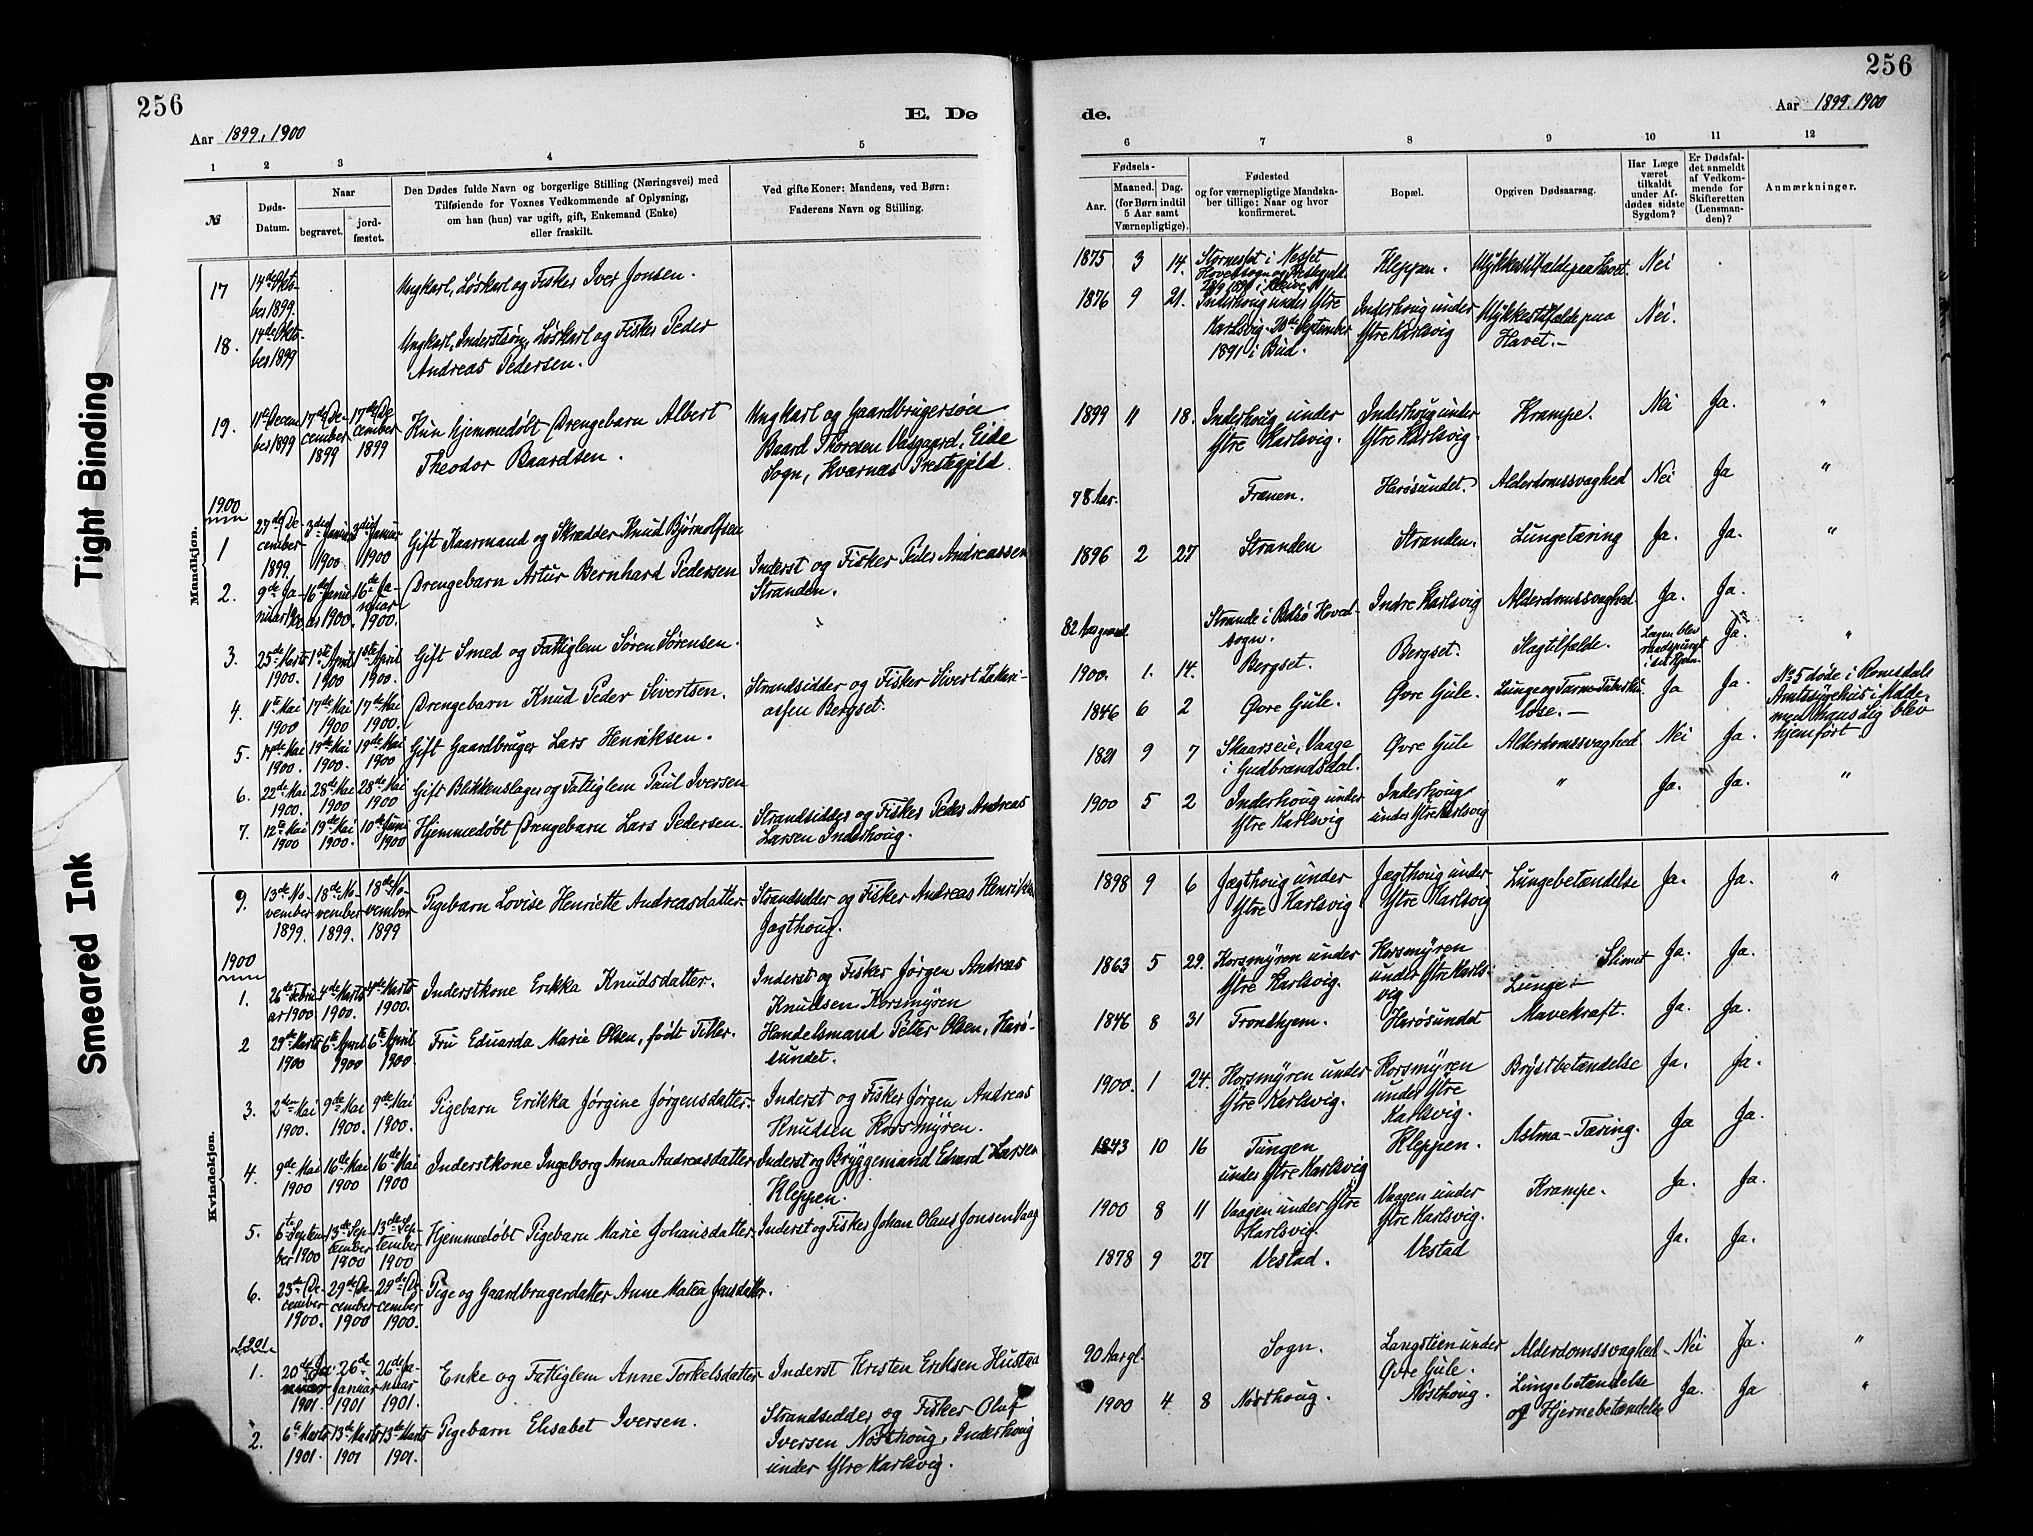 256
256
E. Dø
de.
Aar 1899, 1900
Aar 1899. 1900
1 2 3 4 5
6 7 8 9 10 11 12
№
Døds-
Datum.
Naar
begravet.
jord-
fæstet.
Den Dødes fulde Navn og borgerlige Stilling (Næringsvei) med
Tilføiende for Voxnes Vedkommende af Oplysning,
om han (hun) var ugift, gift, Enkemand (Enke)
eller fraskilt.
Ved gifte Koner: Mandens, ved Børn:
Faderens Navn og Stilling.
Fødsels-
Aar.
Maaned. Dag.
(for Børn indtil
5 Aar samt
Værnepligtige).
Fødested
og for værnepligtige Mandska-
ber tillige: Naar og hvor
konfirmeret.
Bopæl.
Opgiven Dødsaarsag.
Har Læge
været
tilkaldt
under Af-
dødes sidste
Sygdom?
Er Dødsfal-
det anmeldt
af Vedkom-
mende for
Skifteretten
(Lensman-
den)?
Anmærkninger.
Mandkjøn.
17
14de Okto-
ber 1899.
Ungkarl, Løskarl og Fisker Iver Jonsen.
1875 3 14.
Hovedsogn og Prestegjeld.
Kleppen.
Ulykkestilfælde paa Havet.
Nei
18.
14de Okto-
ber 1899
Ungkarl, Inderstsøn, Løskarl og Fisker Peder
Andreas Pedersen.
1876 9 21.
Inderhoug under Ytre
Karlsvig. 28de September
1891 i Bud.
Inderhoug under
Ytre Karlsvig
Ulykkestilfælde paa
Havet. –
Nei.
19.
11te Decem
ber 1899
17de De-
cember
1899
17de De-
cember
1899
Kun hjemmedøbt Drengebarn Albert
Theodor Baardsen.
Ungkarl og Gaardbrugersøn
Baard Thoresen Vasgaard, Eide
Sogn, Kvarnæs Prestegjeld.
1899 11 18.
Inderhoug under
Ytre Karlsvig.
Inderhoug under
Ytre Karlsvig.
Krampe.
Nei
Ja.
"
1900
1
27de De-
cember
1899.
3die Januar
1900
3die Januar
1900
Gift Kaarmand og Skrædder Knud Bjørnolfsen
78 Aar.
Frænen.
Harøsundet.
Alderdomssvaghed
Nei
Ja
"
2.
9de Ja-
nuar 1900
16de Janu
ar 1900.
16de Ja-
nuar
1900.
Drengebarn Artur Bernhard Pedersen
Inderst og Fisker Peder Andreassen
Stranden.
1896 2 27
Stranden
Stranden.
Lungetæring
Ja.
Ja.
"
3.
25de Marts
1900.
1ste April
1900
1ste April
1900.
Gift Smed og Fattiglem Søren Sørensen.
82 Aar gammel.
Strande i Bolsø Hoved-
sogn.
Indre Karlsvig
Alderdomssvaghed.
Ja.
Ja.
4.
11te Mai
1900
17de Mai
1900
17de Mai
1900.
Drengebarn Knud Peder Sivertsen.
Strandsidder og Fisker Sivert Zakari-
assen Bergset.
1900. 1. 14.
Bergset.
Bergset.
Slagtilfælde.
Lægen blev
raadspurgt
i sit Hjem.
Ja.
"
5.
14de Mai
1900.
19de Mai
1900.
19de Mai
1900
Gift Gaardbruger Lars Henriksen.
1846 6 2
Øvre Gule.
Øvre Gule.
Lunge og Tarm-Tuberku
lose. –
Ja
Ja.
No 5 døde i Romsdals
Amtssygehus i Molde,
men hans Lig blev
hjemført.
6.
22de Mai
1900.
28de Mai
1900
28de Mai
1900
Gift Blikkenslager og Fattiglem Paul Iversen
1821 9 7
Skaarseie, Vaage
i Gudbrandsdal.
Øvre Gule
Alderdomssvaghed
Nei
Ja.
7.
12te Mai
1900
19de Mai
1900.
10de Juni
1900
Hjemmedøbt Drengebarn Lars Pedersen.
Strandsidder og Fisker Peder Andreas
Larsen Inderhoug.
1900 5 2
Inderhoug under
Ytre Karlsvig
Inderhoug
under Ytre Karlsvig
"
Ja.
Ja.
"
Kvindekjøn.
9.
13de No-
vember
1899.
18de No-
vember
1899.
18de No-
vember
1899
Pigebarn Lovise Henriette Andreasdatter
Strandsidder og Fisker Andreas Henriksen
Jagthoug.
1898 9 6
Jægthoug under
Ytre Karlsvig
Jægthoug under
Ytre Karlsvig
Lungebetændelse
Ja.
Ja.
"
1900
1.
26de Febru
ar 1900.
4de Marts
1900.
4de Marts
1900.
Inderstkone Erikka Knudsdatter.
Inderst og Fisker Jørgen Andreas
Knudsen Korsmyren
1863 5 29.
Korsmyren under
Ytre Karlsvig.
Korsmyren
under Ytre Karls-
vig
Slimet
Lunge-
Ja.
Ja.
2
29de Marts
1900
6te April
1900
6te April
1900.
Fru Eduarda Marie Olsen, født Tiller.
Handelsmand Peter Olsen, Harø-
sundet.
1846 8 31
Trondhjem.
Harøsundet
Mavekræft.
Ja.
Ja.
3.
2den Mai
1900.
9de Mai
1900.
9de Mai
1900.
Pigebarn Erikka Jørgine Jørgensdatter.
Inderst og Fisker Jørgen Andreas
Knudsen Korsmyren.
1900. 1 24.
Korsmyren under
Ytre Karlsvig.
Korsmyren
under Ytre
Karlsvig.
Brystbetændelse
Ja.
Ja.
4.
9de Mai
1900
16de Mai
1900
16de Mai
1900
Inderstkone Ingeborg Anna Andreasdatter
Inderst og Bryggemand Edvard Larsen
Kleppen.
1843 10 16
Tungen
under Ytre Karlsvig
Kleppen.
Astma-Tæring.
Ja
Ja.
5.
6te Septem
ber 1900
13de Sep-
tember
1900
13de Sep-
tember
1900
Hjemmedøbt Pigebarn Marie Johansdatter
Inderst og Fisker Johan Olaus Jonsen Vaag
1900 8 11
Vaagen under Ytre
Karlsvig.
Vaagen under
Ytre Karlsvig.
Krampe.
Ja.
Ja.
6.
25de De-
cember
1900.
29de De-
cember
1900
29de De-
cember
1900.
Pige og Gaardbrugerdatter Anne Matea Jensdatter.
1878 9 27
Vestad.
Vestad
Ja.
Ja.
1901
1.
20de Ja-
nuar
1901.
26de
Januar
1901
26de Ja-
nuar
1901.
Enke og Fattiglem Anne Torkelsdatter
Inderst Kristen Eriksen Hustad
90 Aar gl.
Sogn.
Langstien under
Øvre Gule.
Alderdomssvaghed
Nei
Ja.
"
2.
6te Marts
1901.
13de Marts
1901
13de Marts
1901.
Pigebarn Elisabet Iversen.
Strandsidder og Fisker Oluf
Iversen Nøsthoug, Inderhoug
under Ytre Karlsvig.
1900 4 8
Nøsthoug.
Nøsthoug.
Lungebetændelse
og Hjernebetændelse
Ja.
Ja
"
Tight Binding
Smeared Ink